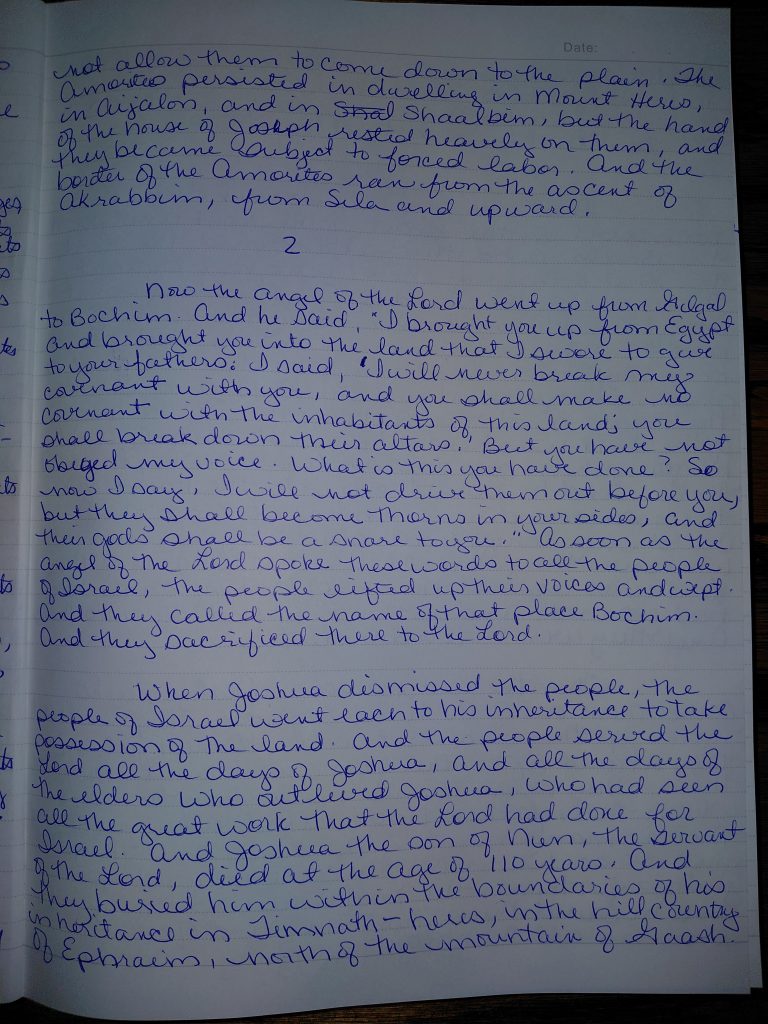 Date:
not allow them to come down to the plain. The
Amorites persisted in dwelling in Mount Heres,
in Aijalon, and in Shaalbim, but the hand
of the house of Joseph rested heavily on them, and
they became subject to forced labor. And the
border of the Amorites ran from the ascent of
Akrabbim, from Sela and upward.
2
Now the angel of the Lord went up from Gilgal
to Bochim. And he said, "I brought you up from Egypt
and brought you into the land that I swore to give
to your fathers. I said, 'I will never break my
covenant with you, and you shall make no
covenant with the inhabitants of this land; you
shall break down their altars.' But you have not
obeyed my voice. What is this you have done? So
now I say, I will not drive them out before you,
but they shall become thorns in your sides, and
their gods shall be a snare to you." As soon as the
angel of the Lord spoke these words to all the people
of Israel, the people lifted up their voices and wept.
And they called the name of that place Bochim.
And they sacrificed there to the Lord.
When Joshua dismissed the people, the
people of Israel went each to his inheritance to take
possession of the land. And the people served the
Lord all the days of Joshua, and all the days of
the elders who outlived Joshua, who had seen
all the great work that the Lord had done for
Israel. And Joshua the son of Nun, the servant
of the Lord, died at the age of 110 years. And
they buried him within the boundaries of his
inheritance in Timnath-heres, in the hill country
of Ephraim, north of the mountain of Gaash.